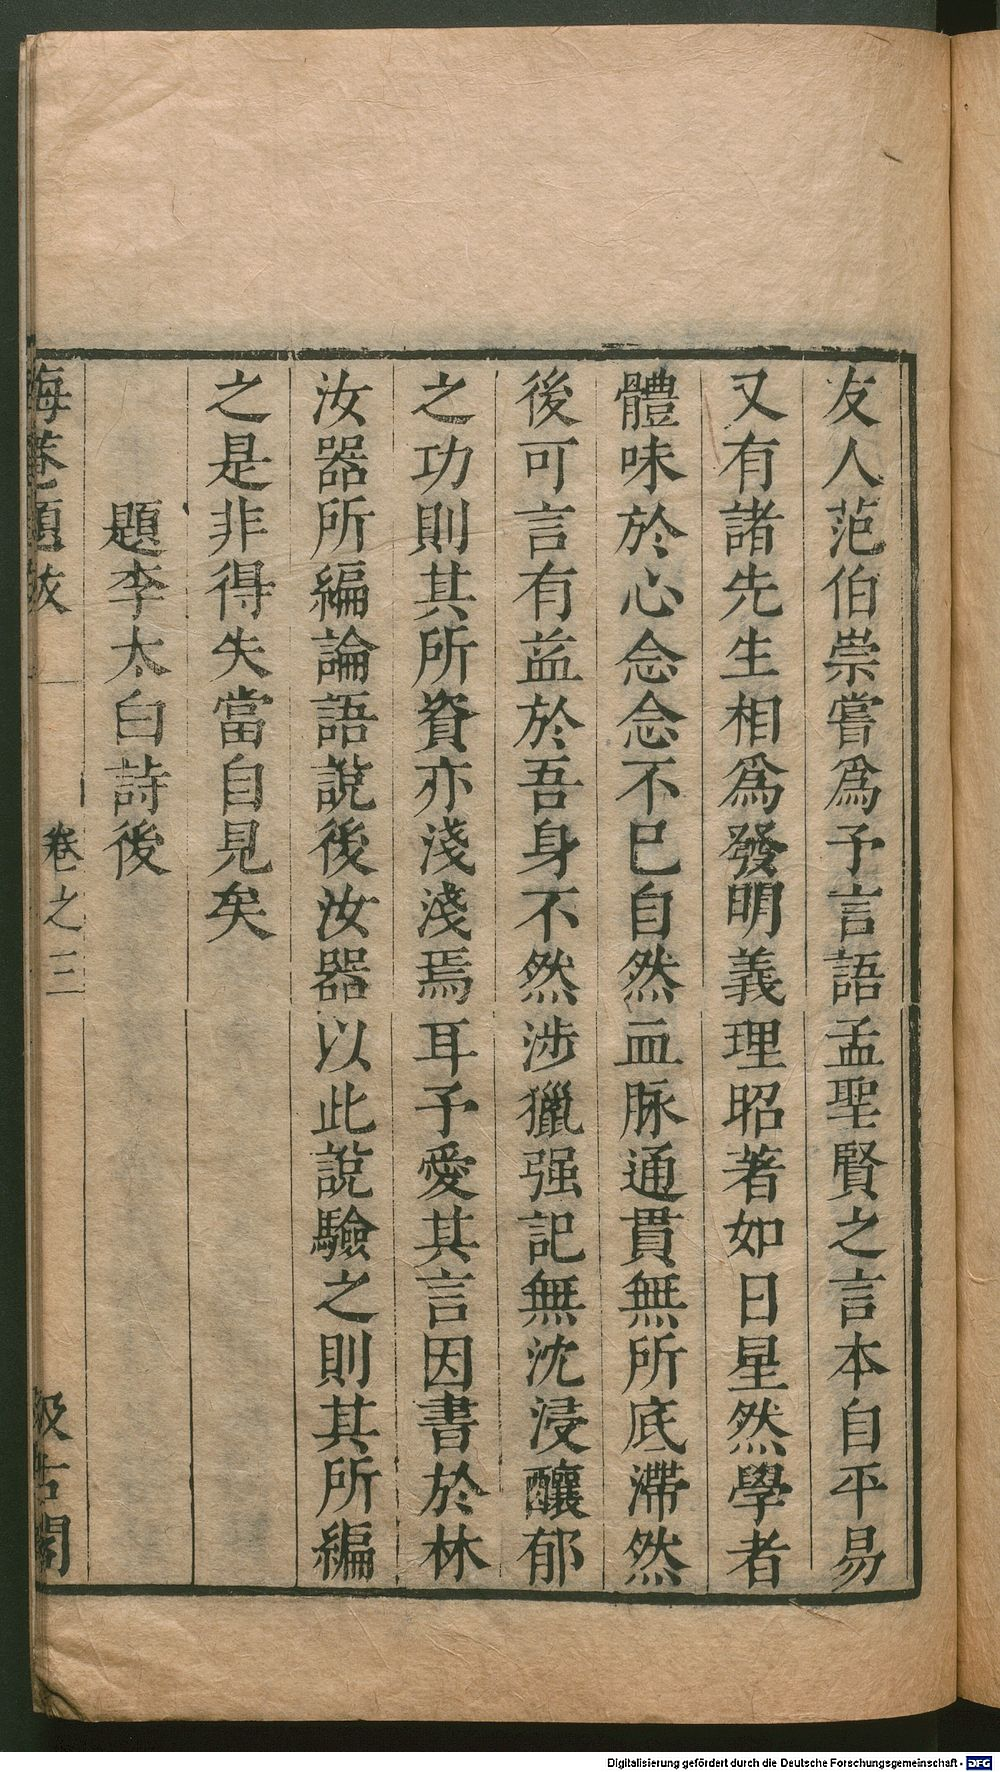 友人范伯崇嘗爲予言語孟聖賢之言本自平易
又有諸先生相爲發明義理昭著如日星然學者
體味於心念念不已自然血脉通貫無所底滯然
後可言有益於吾身不然涉獵强記無沈浸釀郁
之功則其所資亦淺淺焉耳予愛其言因書於林
汝器所編論語說後汝器以此說驗之則其所編
之是非得失當自見矣
題李太白詩後
晦菴題跋 卷之三 汲古閣
Digitalisierung gefördert durch die Deutsche Forschungsgemeinschaft - DFG